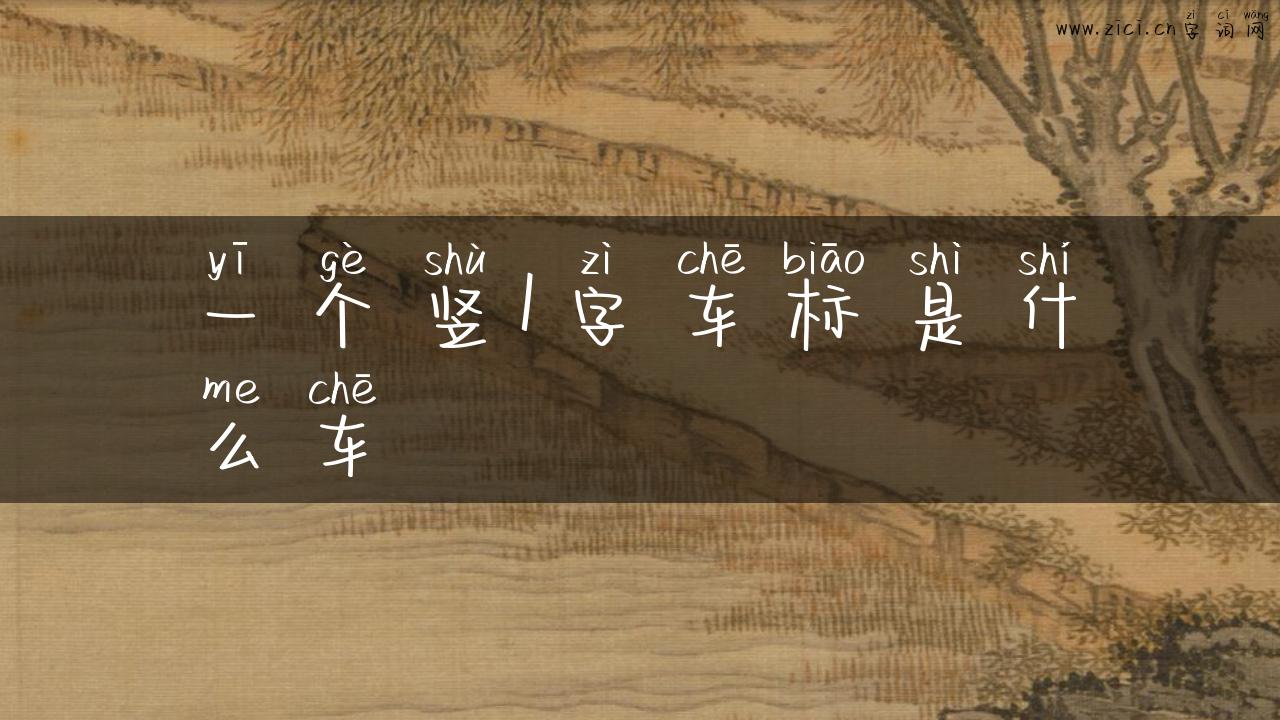 zì cí wǎng
www.zici.cn字词网
yī gè shù zì chē biāo shì shí
一个竖1字车标是什
me chē
么车